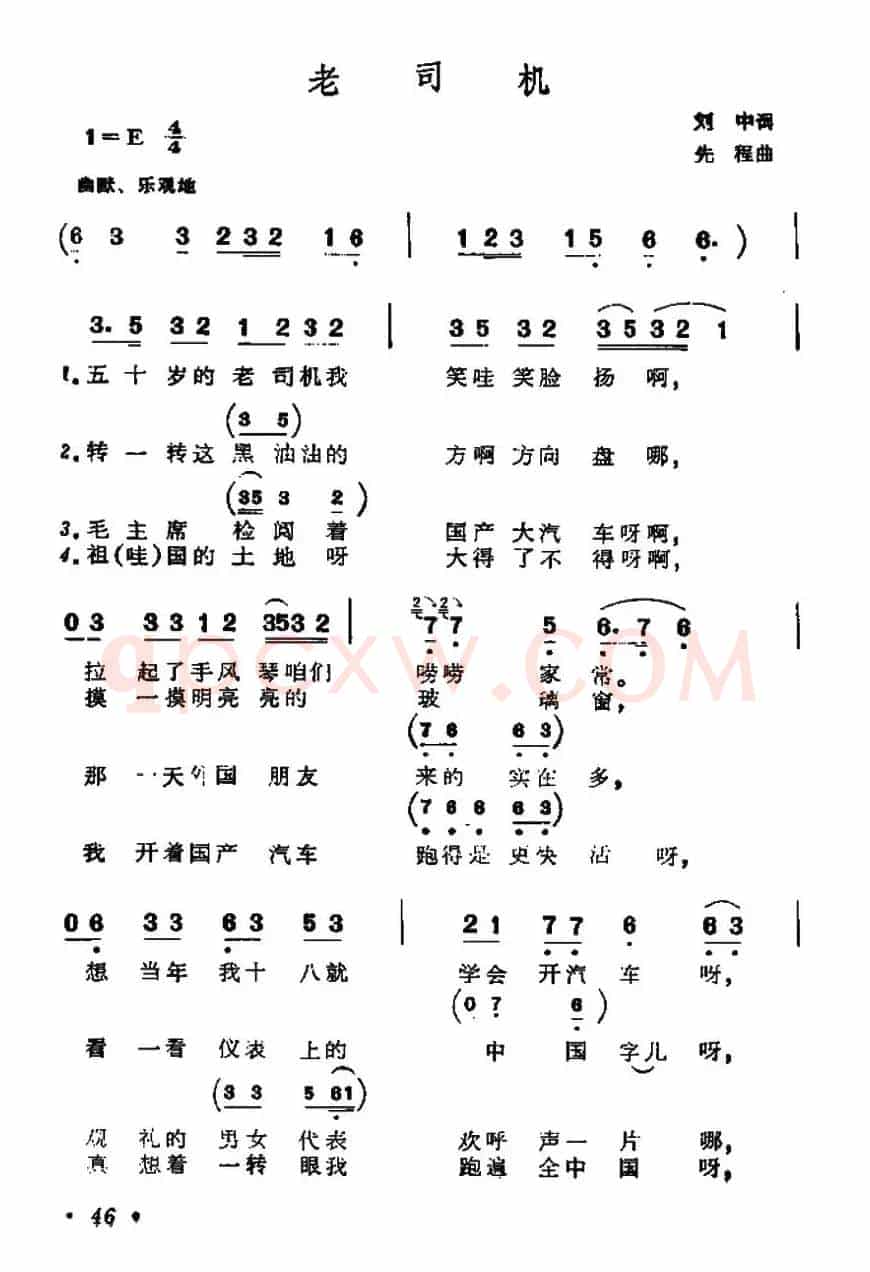 老司机
1=E 4/4
刘 中词
先 程曲
幽默、乐观地
(6 3 3 232 16 | 123 15 6 6·)
3·5 32 1 232 | 35 32 3532 1 |
1.五十岁的老司机我 笑哇笑脸扬啊,
(3 5)
2.转一转这黑油油的 方啊方向盘哪,
(35 3 2)
3.毛主席检阅着 国产大汽车呀啊,
4.祖(哇)国的土地呀 大得了不得呀啊,
03 33 12 3532 | 77 5 6·7 6 |
拉起了手风琴咱们 唠唠家常。
摸一摸明亮亮的 玻璃窗,
(76 63)
那一天外国朋友 来的实在多,
(766 63)
我开着国产汽车 跑得是更快活呀,
06 33 63 53 | 21 77 6 63 |
想当年我十八就 学会开汽车呀,
(07 6)
看一看仪表上的 中国字儿呀,
(33 561)
观礼的男女代表 欢呼声一片哪,
真想着一转眼我 跑遍全中国呀,
· 46 ·
qpcxw.COM